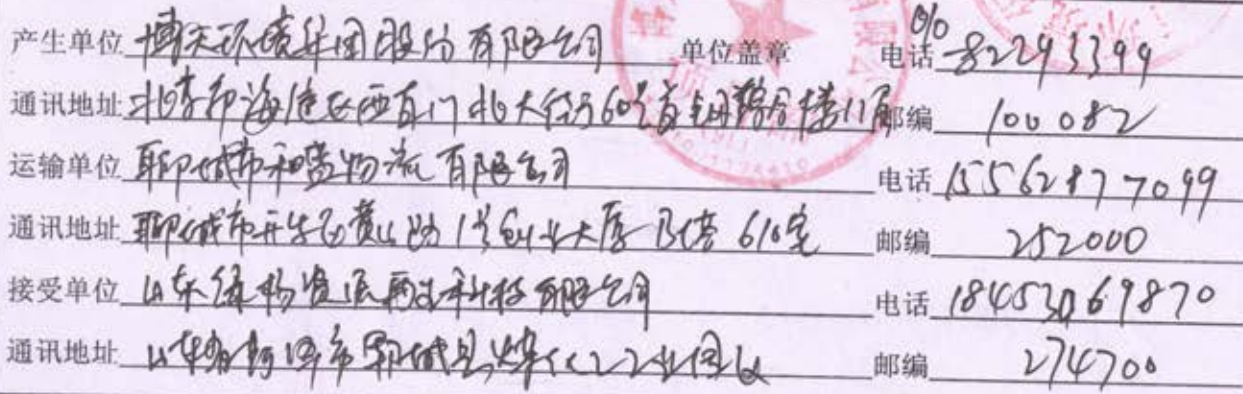 产生单位 博天环境集团股份有限公司 单位盖章 电话 010 82291399
通讯地址 北京市海淀区西直门北大街60号首钢综合楼11层 邮编 100082
运输单位 聊城市和贵物流有限公司 电话 15562877099
通讯地址 聊城市开发区黄山路1号创业大厦B塔610室 邮编 252000
接受单位 山东绿杨资源再生科技有限公司 电话 18453069870
通讯地址 山东省菏泽市郓城县煤化工工业园区 邮编 274700